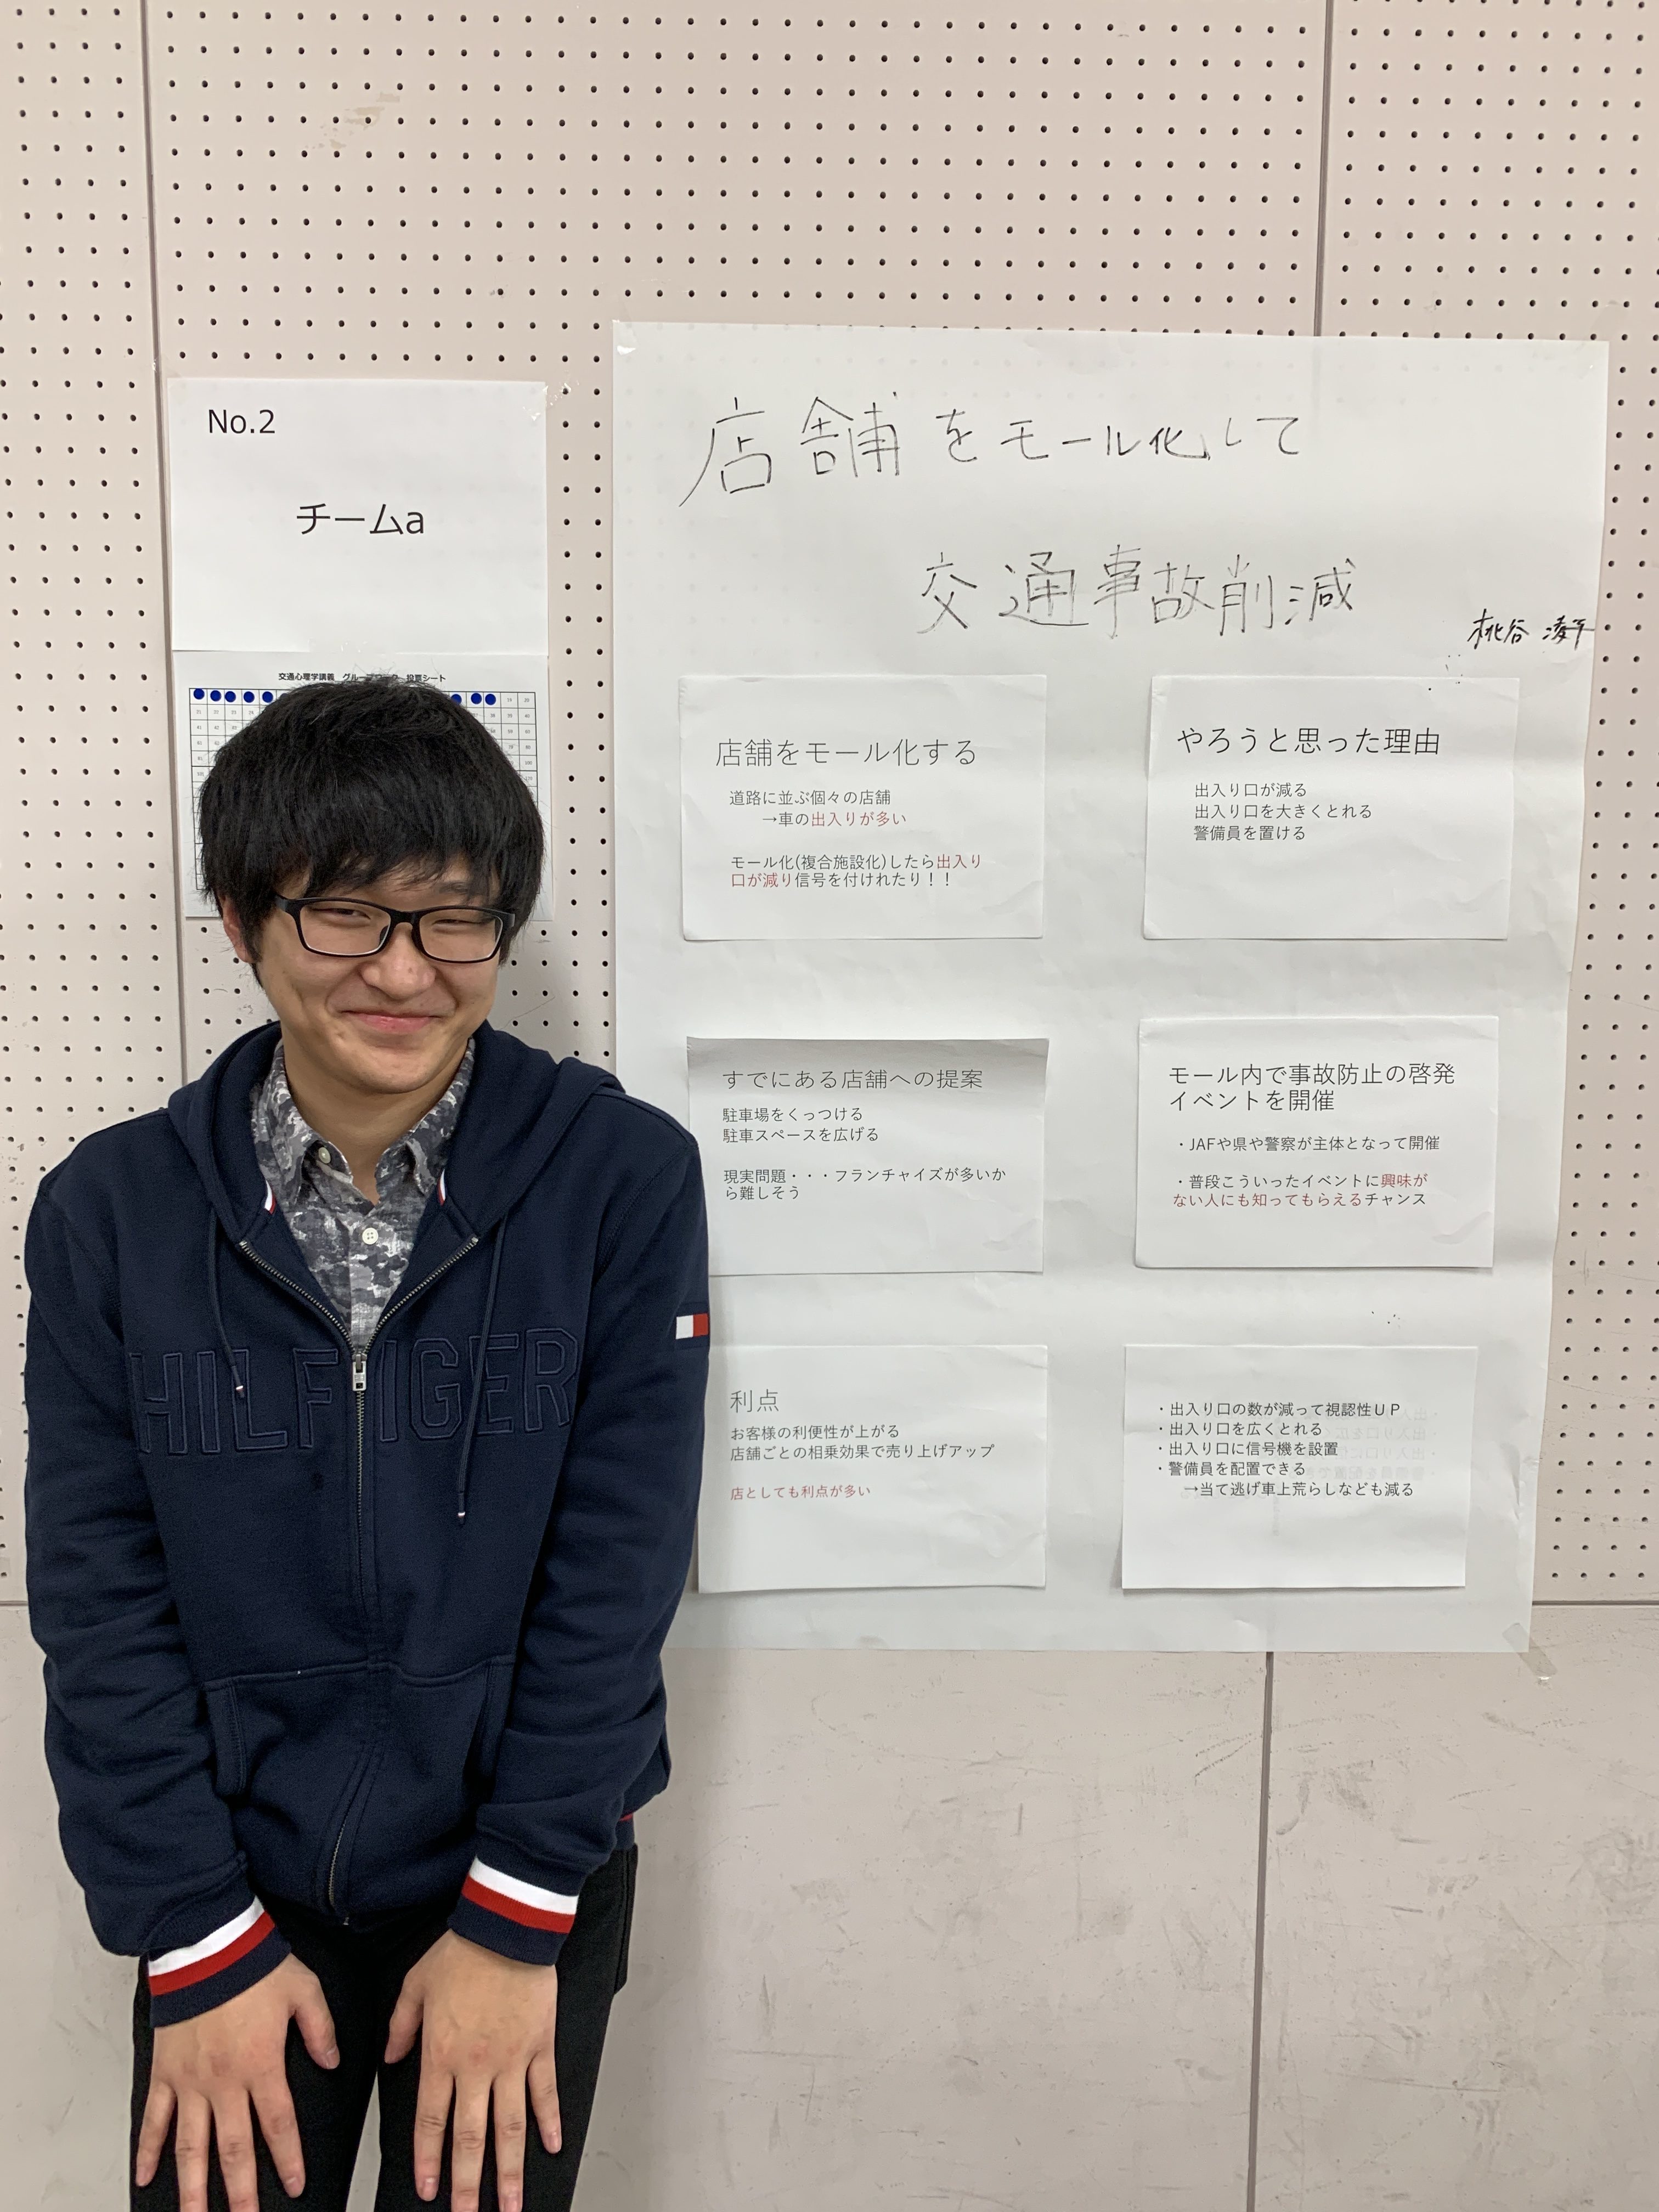 No.2
チームa
交通心理学講義 グループワーク 投票シート
店舗をモール化して
交通事故削減
桃谷 凌平
店舗をモール化する
道路に並ぶ個々の店舗
→車の出入りが多い
モール化(複合施設化)したら出入り
口が減り信号を付けれたり！！
やろうと思った理由
出入り口が減る
出入り口を大きくとれる
警備員を置ける
すでにある店舗への提案
駐車場をくっつける
駐車スペースを広げる
現実問題・・・フランチャイズが多いか
ら難しそう
モール内で事故防止の啓発
イベントを開催
・JAFや県や警察が主体となって開催
・普段こういったイベントに興味が
ない人にも知ってもらえるチャンス
利点
お客様の利便性が上がる
店舗ごとの相乗効果で売り上げアップ
店としても利点が多い
・出入り口の数が減って視認性ＵＰ
・出入り口を広くとれる
・出入り口に信号機を設置
・警備員を配置できる
→当て逃げ車上荒らしなども減る
HILFIGER